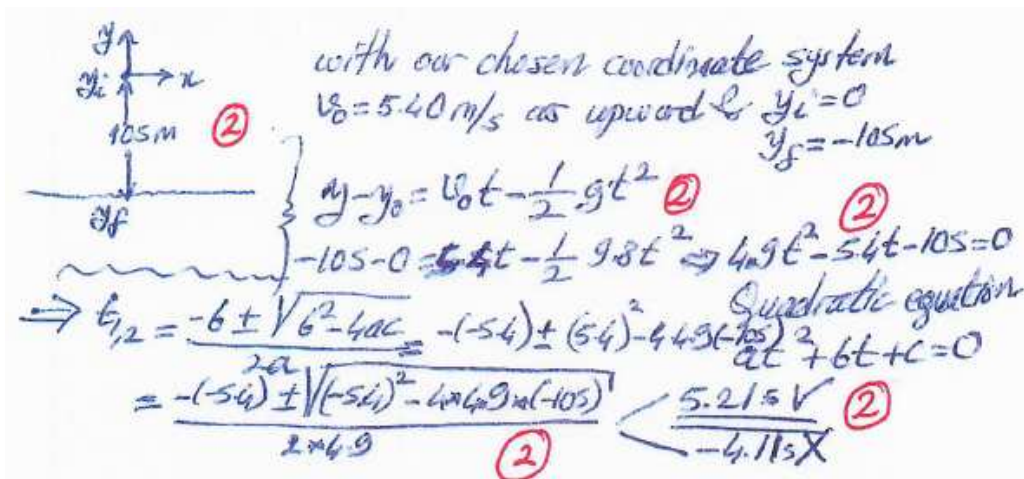 y
yi → x
105m ②
yf
with our chosen coordinate system
v₀ = 5.40 m/s as upward & yi = 0
yf = -105m
y - y₀ = v₀t - 1/2 gt² ② ②
-105 - 0 = 5.4t - 1/2 9.8t² ⇒ 4.9t² - 5.4t - 105 = 0
Quadratic equation
at² + bt + c = 0
⇒ t₁,₂ = (-b ± √(b² - 4ac)) / 2a = -(-5.4) ± (5.4)² - 4 4.9(-105)
= (-(-5.4) ± √((-5.4)² - 4*4.9*(-105))) / 2*4.9 ②
5.21s √ ②
-4.11s X